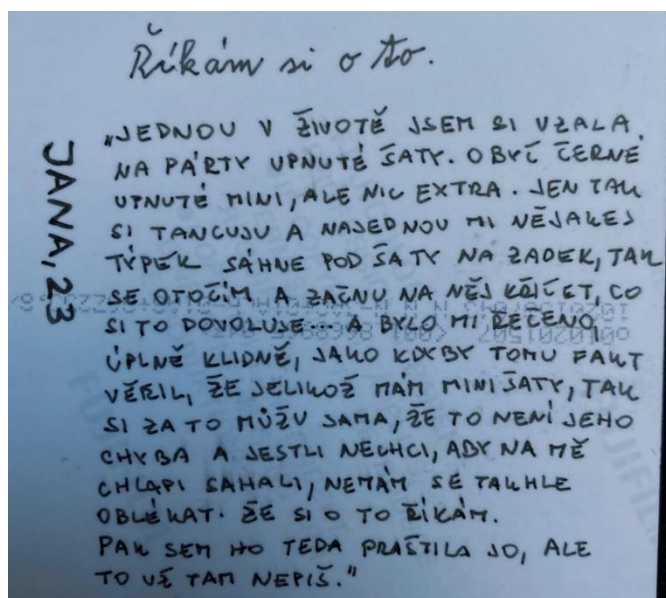 Říkám si o to.
JANA, 23
„JEDNOU V ŽIVOTĚ JSEM SI VZALA
NA PÁRTY UPNUTÉ ŠATY. OBYČ ČERNÉ
UPNUTÉ MINI, ALE NIC EXTRA. JEN TAK
SI TANCUJU A NAJEDNOU MI NĚJAKEJ
TÝPEK SÁHNE POD ŠATY NA ZADEK, TAK
SE OTOČÍM A ZAČNU NA NĚJ KŘIČET, CO
SI TO DOVOLUJE... A BYLO MI ŘEČENO,
ÚPLNĚ KLIDNĚ, JAKO KDYBY TOMU FAKT
VĚŘIL, ŽE JELIKOŽ MÁM MINIŠATY, TAK
SI ZA TO MŮŽU SAMA, ŽE TO NENÍ JEHO
CHYBA A JESTLI NECHCI, ABY NA MĚ
CHLAPI SAHALI, NEMÁM SE TAKHLE
OBLÉKAT. ŽE SI O TO ŘÍKÁM.
PAK SEM HO TEDA PRAŠTILA JO, ALE
TO UŽ TAM NEPIŠ."